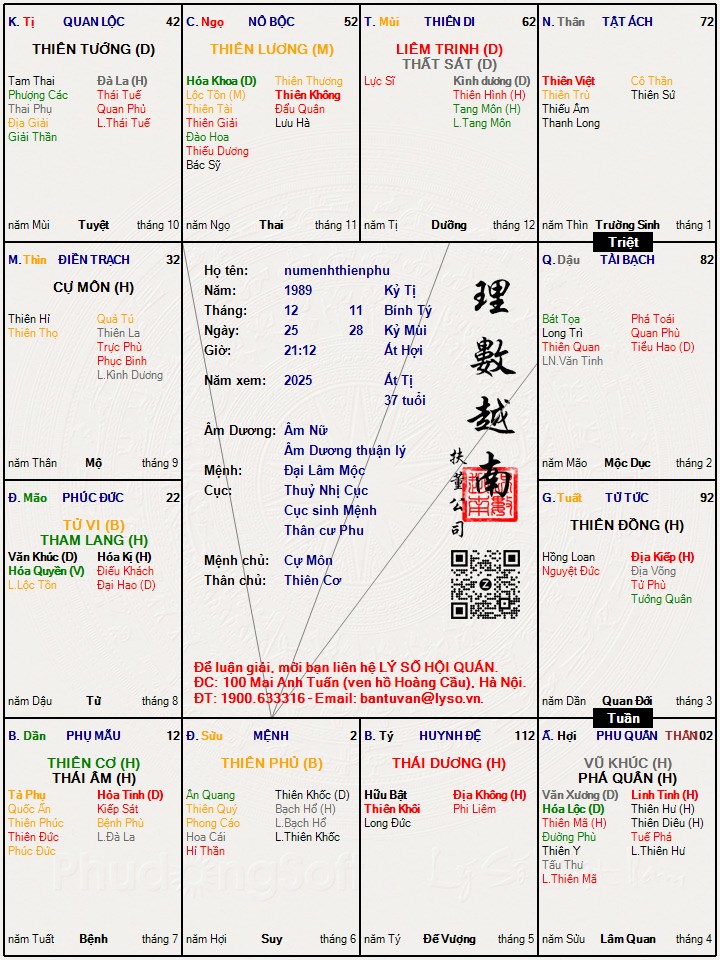 K. Tị QUAN LỘC 42
THIÊN TƯỚNG (D)
Tam Thai Đà La (H)
Phượng Các Thái Tuế
Thai Phụ Quan Phủ
Địa Giải L.Thái Tuế
Giải Thần
năm Mùi Tuyệt tháng 10
C. Ngọ NÔ BỘC 52
THIÊN LƯƠNG (M)
Hóa Khoa (D) Thiên Thương
Lộc Tồn (M) Thiên Không
Thiên Tài Đẩu Quân
Thiên Giải Lưu Hà
Đào Hoa
Thiếu Dương
Bác Sỹ
năm Ngọ Thai tháng 11
T. Mùi THIÊN DI 62
LIÊM TRINH (D)
THẤT SÁT (D)
Lực Sĩ Kình dương (D)
Thiên Hình (H)
Tang Môn (H)
L.Tang Môn
năm Tị Dưỡng tháng 12
N. Thân TẬT ÁCH 72
Thiên Việt Cô Thần
Thiên Trù Thiên Sứ
Thiếu Âm
Thanh Long
năm Thìn Trường Sinh tháng 1
Triệt
M. Thìn ĐIỀN TRẠCH 32
CỰ MÔN (H)
Thiên Hỉ Quả Tú
Thiên Thọ Thiên La
Trực Phù
Phục Binh
L.Kình Dương
năm Thân Mộ tháng 9
Họ tên: numenhthienphu
Năm: 1989 Kỷ Tị
Tháng: 12 11 Bính Tý
Ngày: 25 28 Kỷ Mùi
Giờ: 21:12 Ất Hợi
Năm xem: 2025 Ất Tị
37 tuổi
Âm Dương: Âm Nữ
Âm Dương thuận lý
Mệnh: Đại Lâm Mộc
Cục: Thuỷ Nhị Cục
Cục sinh Mệnh
Thân cư Phu
Mệnh chủ: Cự Môn
Thân chủ: Thiên Cơ
理數越南
扶董公司
Để luận giải, mời bạn liên hệ LÝ SỐ HỘI QUÁN.
ĐC: 100 Mai Anh Tuấn (ven hồ Hoàng Cầu), Hà Nội.
ĐT: 1900.633316 - Email: bantuvan@lyso.vn.
Q. Dậu TÀI BẠCH 82
Bát Tọa Phá Toái
Long Trì Quan Phù
Thiên Quan Tiểu Hao (D)
LN.Văn Tinh
năm Mão Mộc Dục tháng 2
Đ. Mão PHÚC ĐỨC 22
TỬ VI (B)
THAM LANG (H)
Văn Khúc (D) Hóa Kị (H)
Hóa Quyền (V) Điếu Khách
L.Lộc Tồn Đại Hao (D)
năm Dậu Tử tháng 8
G. Tuất TỬ TỨC 92
THIÊN ĐỒNG (H)
Hồng Loan Địa Kiếp (H)
Nguyệt Đức Địa Võng
Tử Phù
Tướng Quân
năm Dần Quan Đới tháng 3
Tuần
B. Dần PHỤ MẪU 12
THIÊN CƠ (H)
THÁI ÂM (H)
Tả Phụ Hỏa Tinh (D)
Quốc Ấn Kiếp Sát
Thiên Phúc Bệnh Phù
Thiên Đức L.Đà La
Phúc Đức
năm Tuất Bệnh tháng 7
Đ. Sửu MỆNH 2
THIÊN PHỦ (B)
Ân Quang Thiên Khốc (D)
Thiên Quý Bạch Hổ (H)
Phong Cáo L.Bạch Hổ
Hoa Cái L.Thiên Khốc
Hỉ Thần
năm Hợi Suy tháng 6
B. Tý HUYNH ĐỆ 112
THÁI DƯƠNG (H)
Hữu Bật Địa Không (H)
Thiên Khôi Phi Liêm
Long Đức
năm Tý Đế Vượng tháng 5
Ấ. Hợi PHU QUÂN THÂN102
VŨ KHÚC (H)
PHÁ QUÂN (H)
Văn Xương (D) Linh Tinh (H)
Hóa Lộc (D) Thiên Hư (H)
Thiên Mã (H) Thiên Diêu (H)
Đường Phù Tuế Phá
Thiên Y L.Thiên Hư
Tấu Thư
L.Thiên Mã
năm Sửu Lâm Quan tháng 4